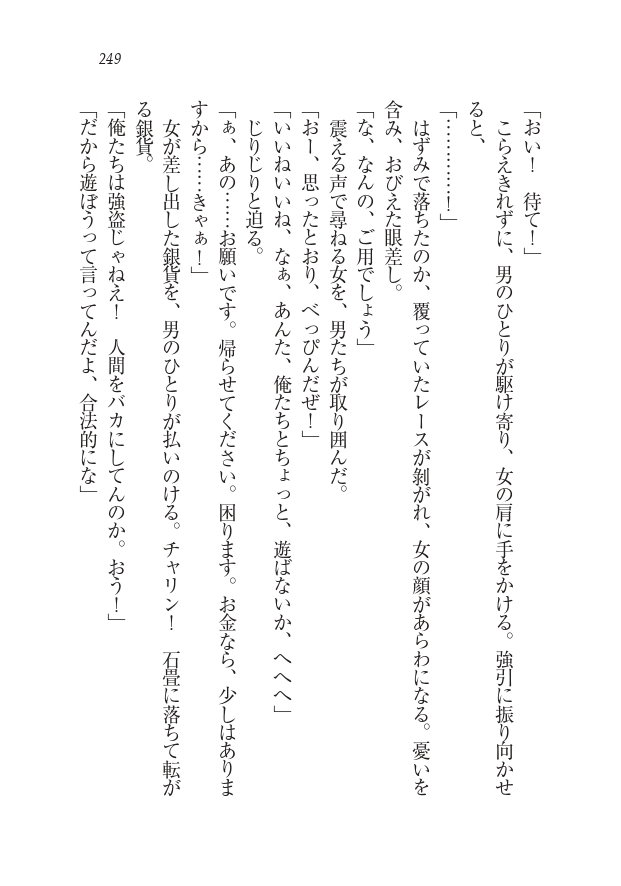 249
「おい！　待て！」
　こらえきれずに、男のひとりが駆け寄り、女の肩に手をかける。強引に振り向かせ
ると、
「…………！」
　はずみで落ちたのか、覆っていたレースが剥がれ、女の顔があらわになる。憂いを
含み、おびえた眼差し。
「な、なんの、ご用でしょう」
　震える声で尋ねる女を、男たちが取り囲んだ。
「おー、思ったとおり、べっぴんだぜ！」
「いいねいいね、なぁ、あんた、俺たちとちょっと、遊ばないか、へへへ」
　じりじりと迫る。
「ぁ、あの……お願いです。帰らせてください。困ります。お金なら、少しはありま
すから……きゃぁ！」
　女が差し出した銀貨を、男のひとりが払いのける。チャリン！　石畳に落ちて転が
る銀貨。
「俺たちは強盗じゃねえ！　人間をバカにしてんのか。おう！」
「だから遊ぼうって言ってんだよ、合法的にな」